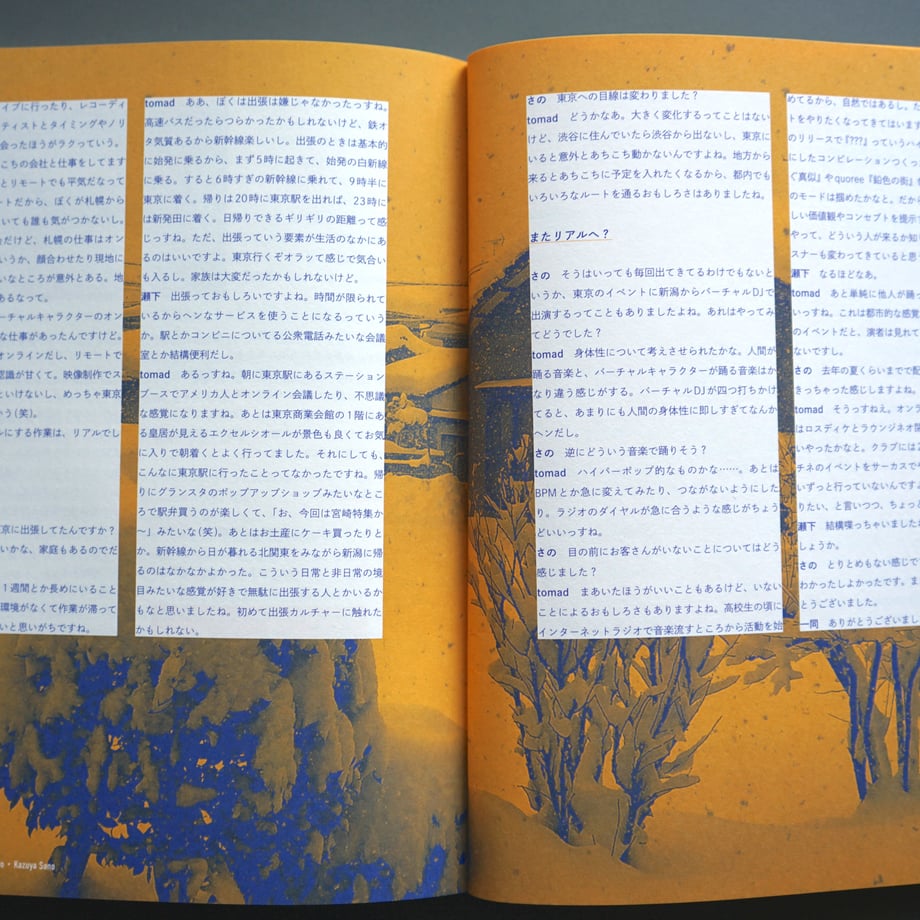 イブに行ったり、レコーディ
ティストとタイミングやノリ
会ったほうがラクっていう。
こちの会社と仕事をしてます
とリモートでも平気だなって
ートだから、ぼくが札幌から
いても誰も気がつかないし。
だけど、札幌の仕事はオン
いうか、顔合わせたり現地に
いなところが意外とある。地
あるなって。
ーチャルキャラクターのオン
な仕事があったんですけど。
オンラインだし、リモートで
認識が甘くて。映像制作でス
といけないし、めっちゃ東京
う(笑)。
ルにする作業は、リアルでし
京に出張してたんですか?
いかな、家庭もあるのでだ
1週間とか長めにいること
環境がなくて作業が滞って
いと思いがちですね。
o・Kazuya Sano
tomad ああ、ぼくは出張は嫌じゃなかったっすね。
高速バスだったらつらかったかもしれないけど、鉄オ
タ気質あるから新幹線楽しいし。出張のときは基本的
に始発に乗るから、まず5時に起きて、始発の白新線
に乗る。すると6時すぎの新幹線に乗れて、9時半に
東京に着く。帰りは20時に東京駅を出れば、23時に
は新発田に着く。日帰りできるギリギリの距離って感
じっすね。ただ、出張っていう要素が生活のなかにあ
るのはいいですよ。東京行くぞオラッて感じで気合い
も入るし。家族は大変だったかもしれないけど。
瀬下 出張っておもしろいですよね。時間が限られて
いるからヘンなサービスを使うことになるっていう
か。駅とかコンビニについてる公衆電話みたいな会議
室とか結構便利だし。
tomad あるっすね。朝に東京駅にあるステーション
ブースでアメリカ人とオンライン会議したり、不思議
な感覚になりますね。あとは東京商業会館の1階にあ
る皇居が見えるエクセルシオールが景色も良くてお気
に入りで朝着くとよく行ってました。それにしても、
こんなに東京駅に行ったことってなかったですね。帰
りにグランスタのポップアップショップみたいなとこ
ろで駅弁買うのが楽しくて、「お、今回は宮崎特集か
〜」みたいな(笑)。あとはお土産にケーキ買ったりと
か。新幹線から日が暮れる北関東をみながら新潟に帰
るのはなかなかよかった。こういう日常と非日常の境
目みたいな感覚が好きで無駄に出張する人とかいるか
もなと思いましたね。初めて出張カルチャーに触れた
かもしれない。
さの 東京への目線は変わりました?
tomad どうかなあ。大きく変化するってことはない
けど、渋谷に住んでいたら渋谷から出ないし、東京に
いると意外とあちこち動かないんですよね。地方から
来るとあちこちに予定を入れたくなるから、都内でも
いろいろなルートを通るおもしろさはありましたね。
またリアルへ?
さの そうはいっても毎回出てきてるわけでもないと
いうか、東京のイベントに新潟からバーチャルDJで
出演するってこともありましたよね。あれはやってみ
てどうでした?
tomad 身体性について考えさせられたかな。人間が
踊る音楽と、バーチャルキャラクターが踊る音楽はか
なり違う感じがする。バーチャルDJが四つ打ちかけ
てると、あまりにも人間の身体性に即しすぎてなんか
ヘンだし。
さの 逆にどういう音楽で踊りそう?
tomad ハイパーポップ的なものかな……。あとは
BPMとか急に変えてみたり、つながないようにした
り。ラジオのダイヤルが急に合うような感じがちょう
どいいっすね。
さの 目の前にお客さんがいないことについてはどう
感じました?
tomad まあいたほうがいいこともあるけど、いない
ことによるおもしろさもありますよね。高校生の頃に
インターネットラジオで音楽流すところから活動を始
めてるから、自然ではあるし。
トをやりたくなってきてはいます
のリリースで『???』っていうハイ
にしたコンピレーションつくっ
ぐ真似』やquoree『鉛色の街』
のモードは掴めたかなと。だから
しい価値観やコンセプトを提示
やって、どういう人が来るか知り
スナーも変わってきていると思う
瀬下 なるほどなあ。
tomad あと単純に他人が踊っ
いっすね。これは都市的な感覚
のイベントだと、演者は見れて
ないですし。
さの 去年の夏くらいまでで配
きっちゃった感じしますよね。
tomad そうっすねえ。オン
はロスディケとラウンジネオ閉
いやったかなと。クラブには
チネのイベントをサーカスで
いずっと行っていないんですよ
りたい、と言いつつ、ちょっ
瀬下 結構喋っちゃいました
しょうか。
さの とりとめもない感じで
わかったしよかったです。ま
とうございました。
一同 ありがとうございまし